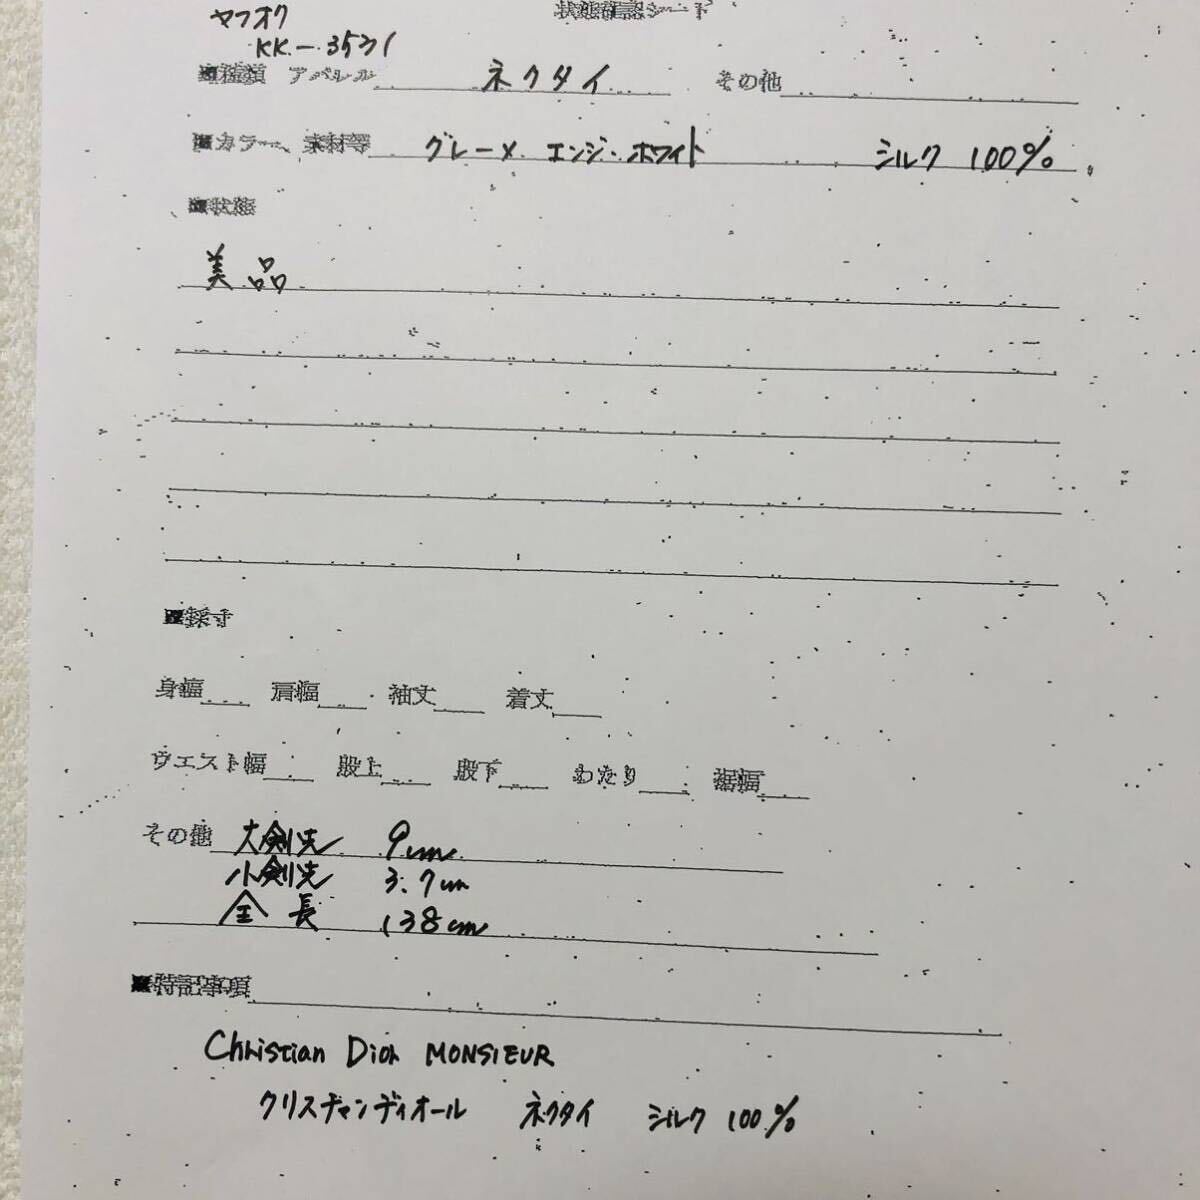 状態確認シート
ヤフオク
KK-3571
■種類 アパレル ネクタイ その他
■カラー、素材等 グレー× エンジ・ホワイト シルク 100%
■状態
美品
■採寸
身幅 肩幅 袖丈 着丈
ウエスト幅 股上 股下 わたり 裾幅
その他 大剣先 9cm
小剣先 3.7cm
全長 138cm
■特記事項
Christian Dior MONSIEUR
クリスチャンディオール ネクタイ シルク 100%